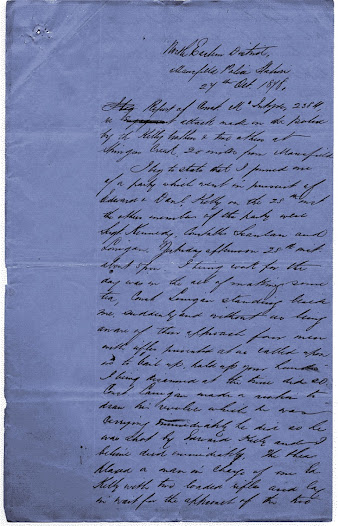 North Eastern District,
Mansfield Police Station
27th Oct 1878.
Report of Const McIntyre, 2384
attack made on the police
by the Kelly brothers & two others at
Stringers Creek, 20 miles from Mansfield
I beg to state that I formed one
of a party which went in pursuit of
Edward & Danl Kelly on the 25th inst
the other members of the party were
Sergt Kennedy, Constable Scanlan and
Lonigan. Yesterday afternoon 26th inst
about 5pm. I being cook for the
day was in the act of making some
tea, Const Lonigan standing beside
me, suddenly and without us being
aware of their approach four men
with rifles presented at us called upon
us to bail up, hold up your hands
I being disarmed at the time did so.
Const Lonigan made a motion to
draw his revolver which he was
carrying immediately he did so he
was shot by Edward Kelly and I
believe died immediately. The
placed a man in charge of me
Kelly with two loaded rifles and lay
in wait for the approach of the two